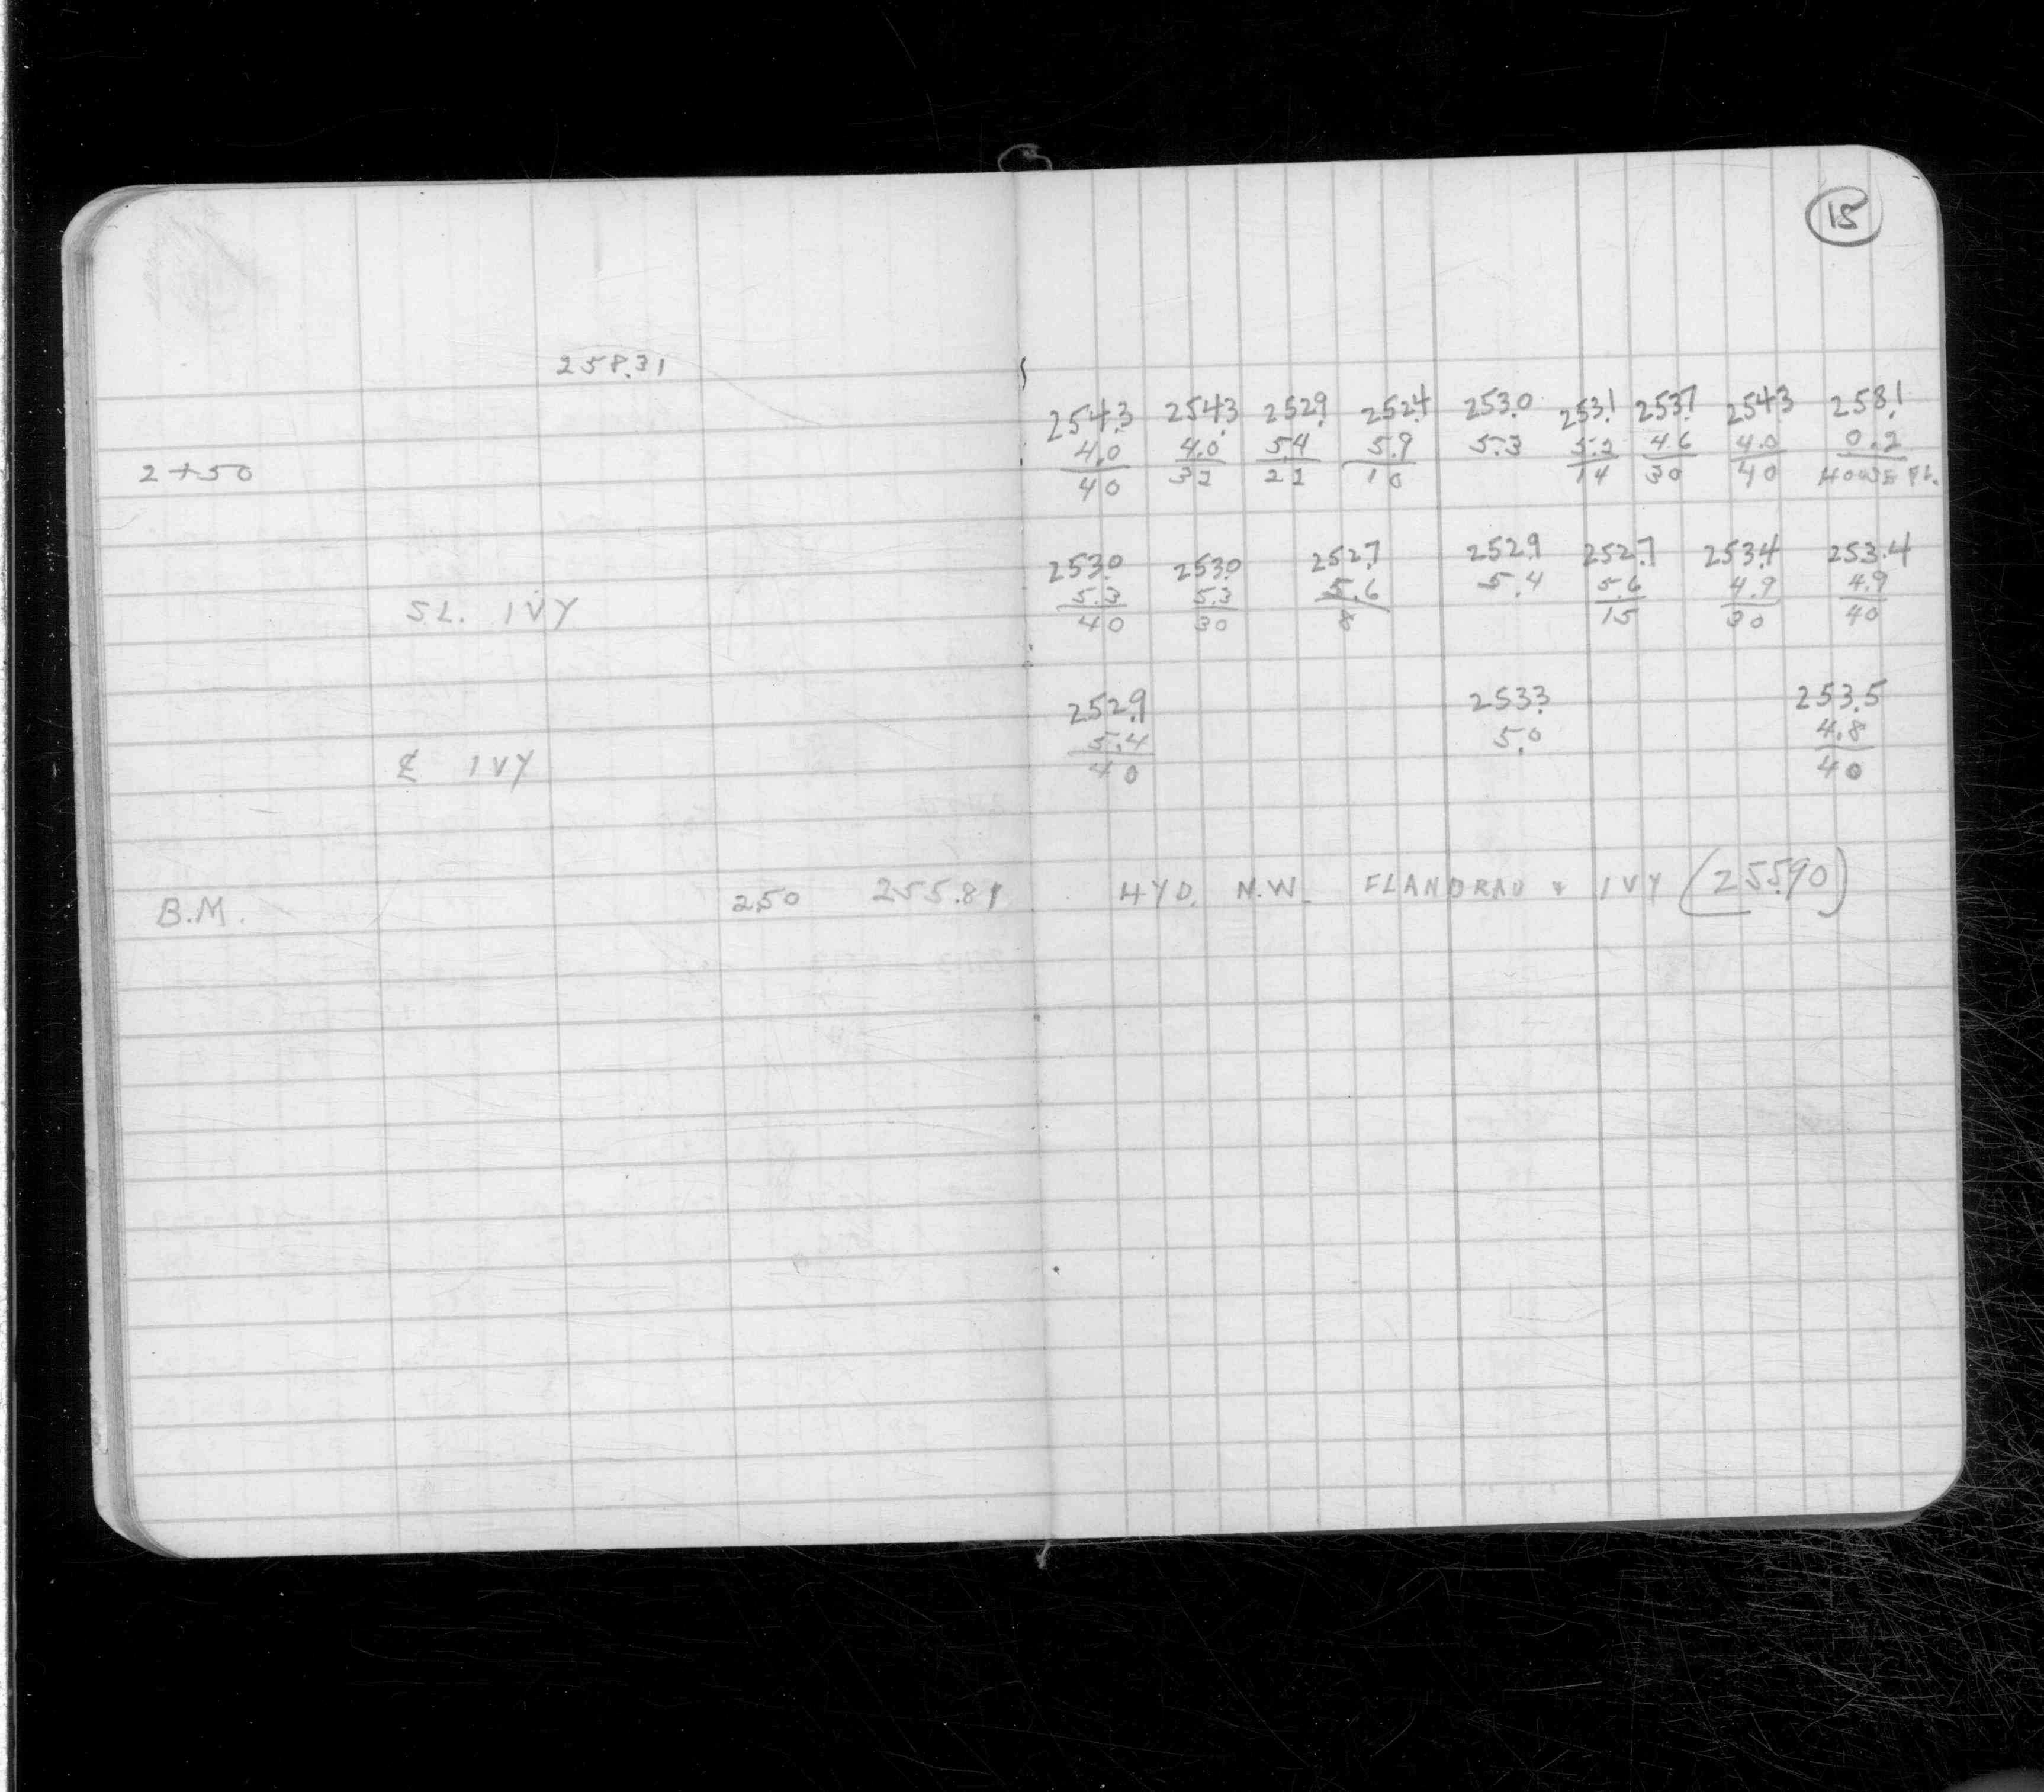 15
258.31
254.3 254.3 252.9 252.4 253.0 253.1 253.7 254.3 258.1
2+50 4.0 4.0 5.4 5.9 5.3 5.2 4.6 4.0 0.2
40 32 22 10 14 30 40 HOUSE PL.
253.0 253.0 252.7 252.9 252.7 253.4 253.4
SL. IVY 5.3 5.3 5.6 5.4 5.6 4.9 4.9
40 30 8 15 30 40
252.9 253.3 253.5
℄ IVY 5.4 5.0 4.8
40 40
B.M. 2.50 255.81 HYD. N.W. FLANDRAU & IVY (255.90)